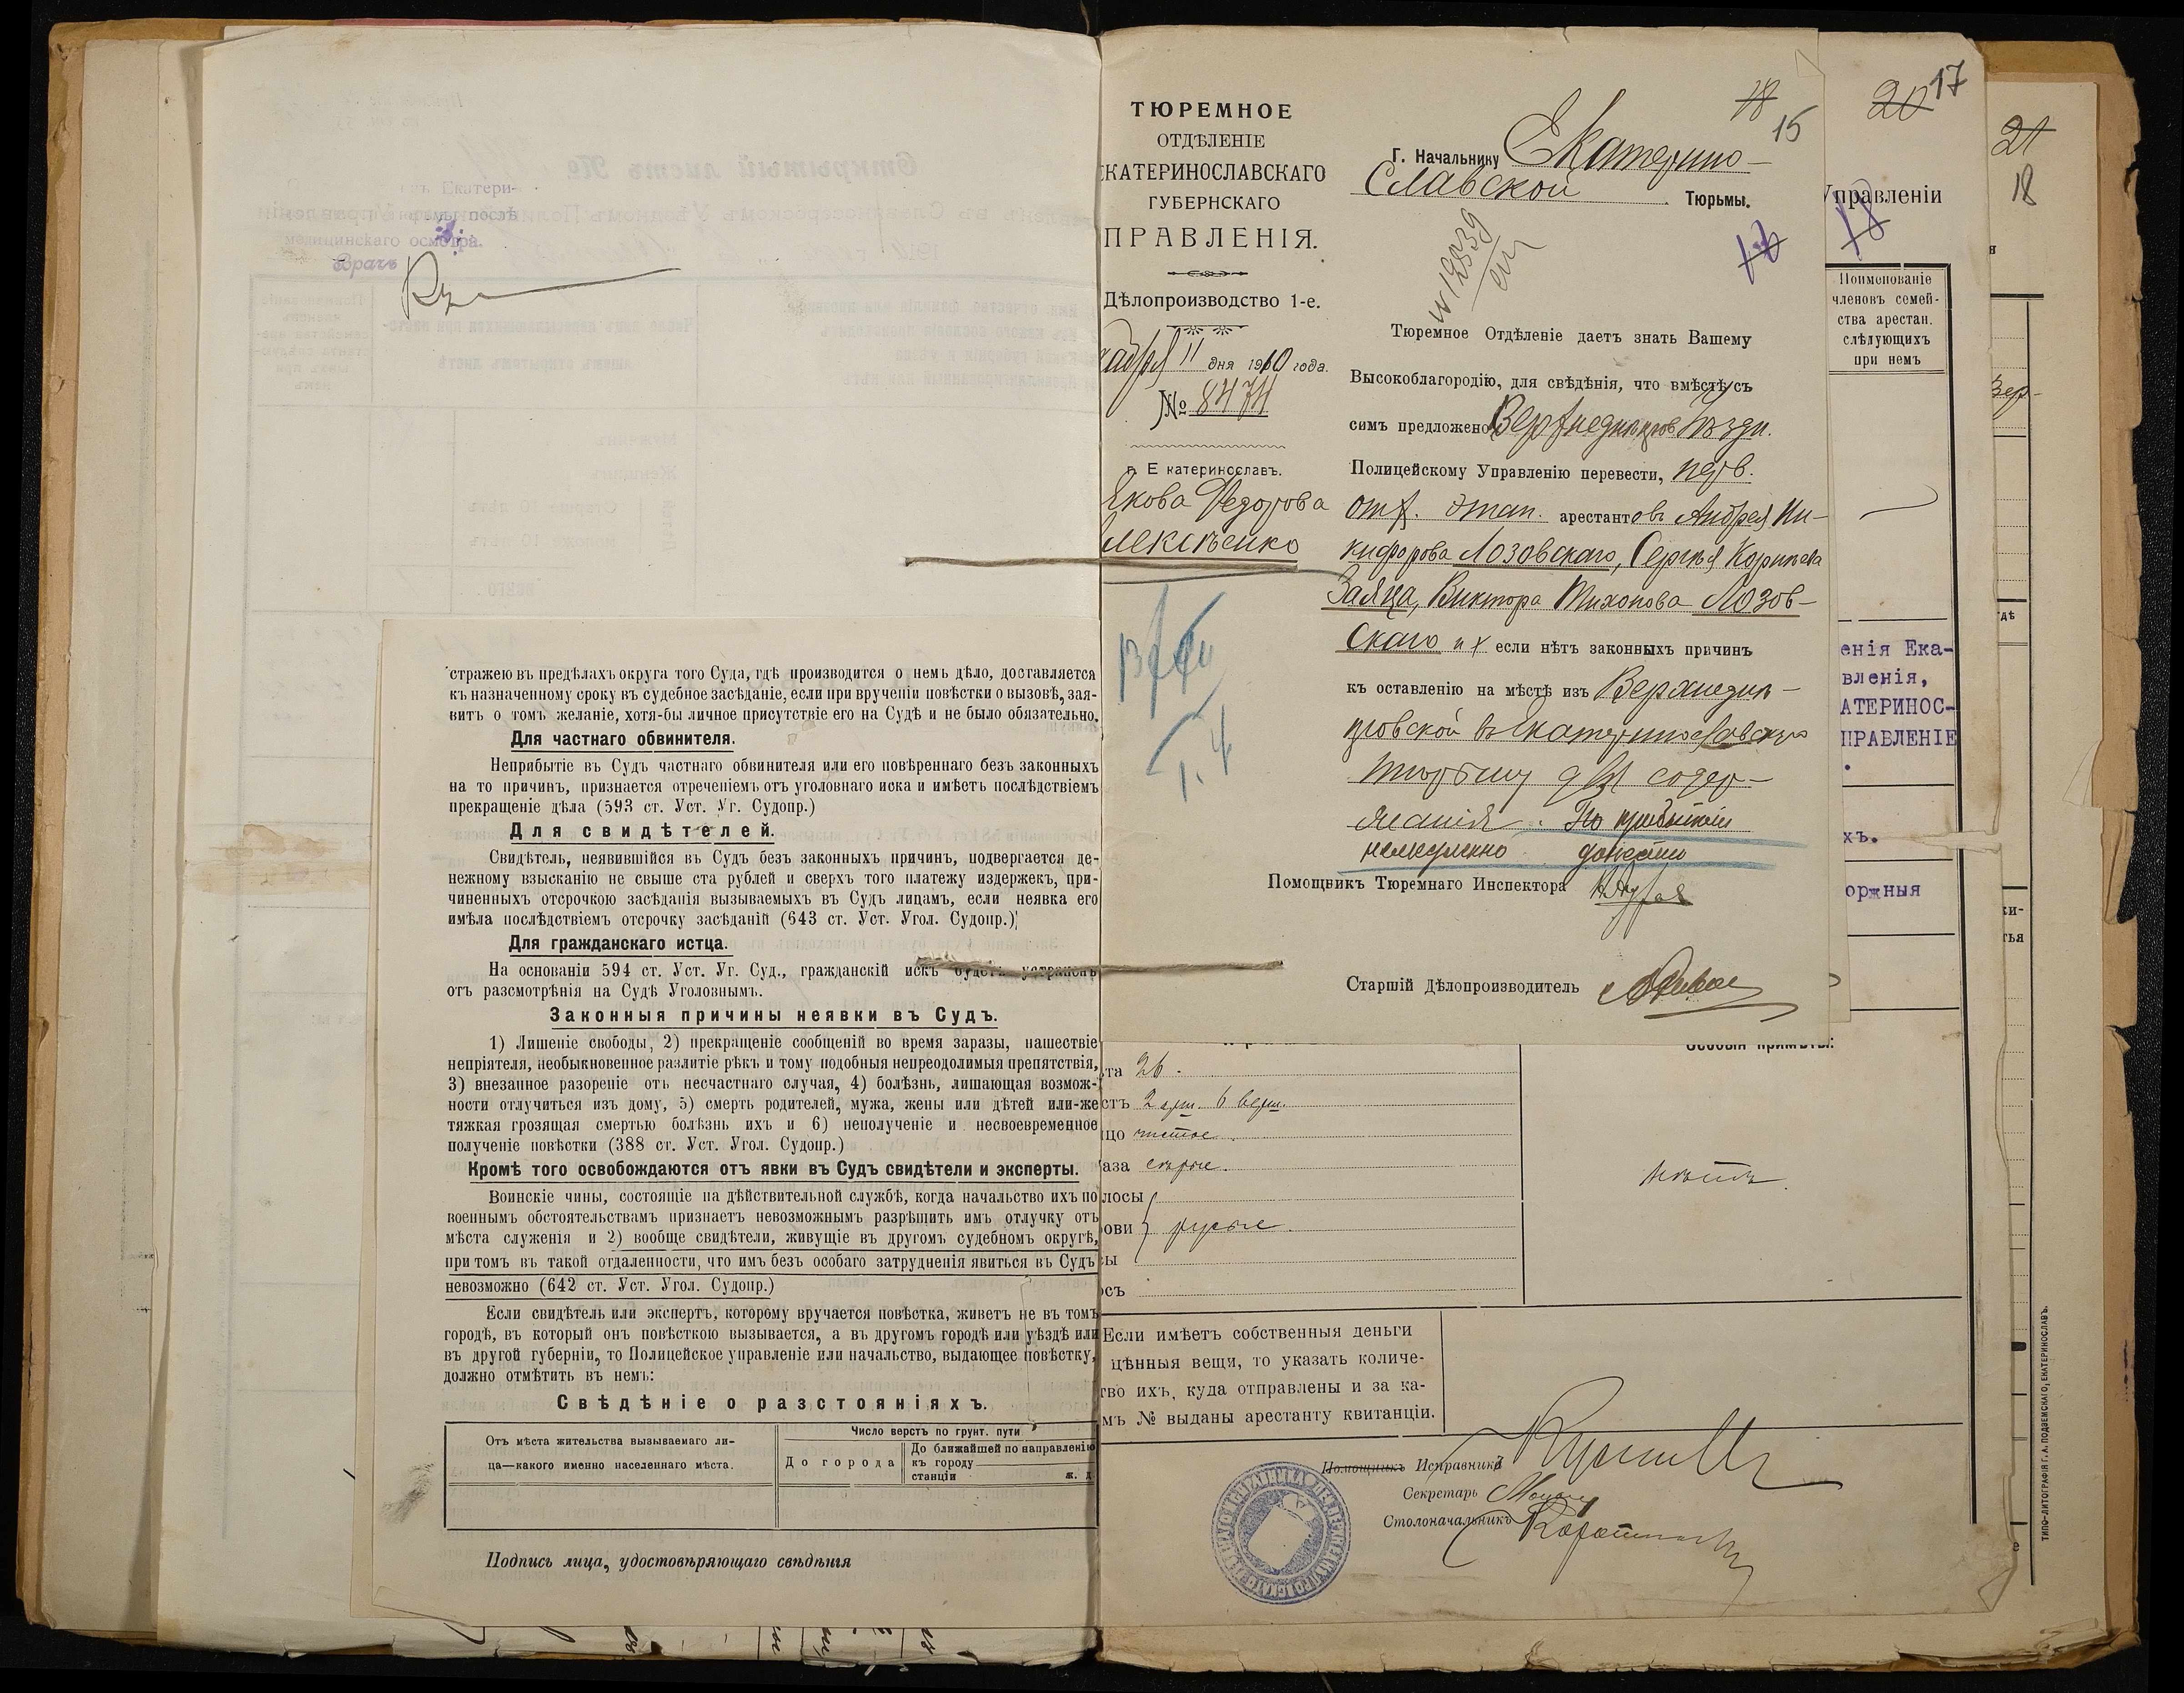 Екатери-
послѣ
медицинскаго осмотра.
Врачъ
стражею въ предѣлахъ округа того Суда, гдѣ производится о немъ дѣло, доставляется
къ назначенному сроку въ судебное засѣданіе, если при врученіи повѣстки о вызовѣ, зая-
витъ о томъ желаніе, хотя-бы личное присутствіе его на Судѣ и не было обязательно.
Для частнаго обвинителя.
Неприбытіе въ Судъ частнаго обвинителя или его повѣреннаго безъ законныхъ
на то причинъ, признается отреченіемъ отъ уголовнаго иска и имѣетъ послѣдствіемъ
прекращеніе дѣла (593 ст. Уст. Уг. Судопр.)
Для свидѣтелей.
Свидѣтель, неявившійся въ Судъ безъ законныхъ причинъ, подвергается де-
нежному взысканію не свыше ста рублей и сверхъ того платежу издержекъ, при-
чиненныхъ отсрочкою засѣданія вызываемыхъ въ Судъ лицамъ, если неявка его
имѣла послѣдствіемъ отсрочку засѣданій (643 ст. Уст. Угол. Судопр.)
Для гражданскаго истца.
На основаніи 594 ст. Уст. Уг. Суд., гражданскій искъ будетъ устраненъ
отъ разсмотрѣнія на Судѣ Уголовнымъ.
Законныя причины неявки въ Судъ.
1) Лишеніе свободы, 2) прекращеніе сообщеній во время заразы, нашествіе
непріятеля, необыкновенное разлитіе рѣкъ и тому подобныя непреодолимыя препятствія,
3) внезапное разореніе отъ несчастнаго случая, 4) болѣзнь, лишающая возмож-
ности отлучиться изъ дому, 5) смерть родителей, мужа, жены или дѣтей или-же
тяжкая грозящая смертью болѣзнь ихъ и 6) неполученіе и несвоевременное
полученіе повѣстки (388 ст. Уст. Угол. Судопр.)
Кромѣ того освобождаются отъ явки въ Судъ свидѣтели и эксперты.
Воинскіе чины, состоящіе на дѣйствительной службѣ, когда начальство ихъ по
военнымъ обстоятельствамъ признаетъ невозможнымъ разрѣшить имъ отлучку отъ
мѣста служенія и 2) вообще свидѣтели, живущіе въ другомъ судебномъ округѣ,
при томъ въ такой отдаленности, что имъ безъ особаго затрудненія явиться въ Судъ
невозможно (642 ст. Уст. Угол. Судопр.)
Если свидѣтель или экспертъ, которому вручается повѣстка, живетъ не въ томъ
городѣ, въ который онъ повѣсткою вызывается, а въ другомъ городѣ или уѣздѣ или
въ другой губерніи, то Полицейское управленіе или начальство, выдающее повѣстку,
должно отмѣтить въ немъ:
Свѣдѣніе о разстояніяхъ.
Отъ мѣста жительства вызываемаго ли-
ца—какого именно населеннаго мѣста.
Число верстъ по грунт. пути
До города
До ближайшей по направленію
къ городу
станціи ж. д.
Подпись лица, удостовѣряющаго свѣдѣнія
ТЮРЕМНОЕ
ОТДѢЛЕНІЕ
ЕКАТЕРИНОСЛАВСКАГО
ГУБЕРНСКАГО
ПРАВЛЕНІЯ.
Дѣлопроизводство 1-е.
кабря 11 дня 1910 года.
№ 8474
г. Екатеринославъ.
Якова Федорова
Алексѣенко
18
15
Г. Начальнику Екатерино-
славской Тюрьмы.
№ 12339
Тюремное Отдѣленіе даетъ знать Вашему
Высокоблагородію, для свѣдѣнія, что вмѣстѣ съ
симъ предложено Верхнеднѣпров Уѣздн.
Полицейскому Управленію перевести, перв.
отх. этап. арестантовъ Андрея Ни-
кифорова Лозовскаго, Сергѣя Корнѣева
Заяца, Виктора Тихонова Лозов-
скаго и х если нѣтъ законныхъ причинъ
къ оставленію на мѣстѣ изъ Верхнеднѣ-
провской въ Екатеринославскую
тюрьму для содер-
жанія. По прибытіи
немедленно донести
Помощникъ Тюремнаго Инспектора
Старшій Дѣлопроизводитель
20 17
Управленіи
18
Поименованіе
членовъ семей-
ства арестан.
слѣдующихъ
при немъ
енія Ека-
вленія,
АТЕРИНОС-
ПРАВЛЕНІЕ
хъ.
оржныя
21
18
Вер-
гдѣ
Особыя примѣты:
та 26.
стъ 2 арш. 6 верш.
цо чистое.
лаза сѣрые.
лосы
ови русые.
сы
осъ
нѣтъ.
Если имѣетъ собственныя деньги
цѣнныя вещи, то указать количе-
тво ихъ, куда отправлены и за ка-
мъ № выданы арестанту квитанціи.
Помощникъ Исправника
Секретарь
Столоначальникъ
ТИПО-ЛИТОГРАФІЯ Г. А. ПОДЗЕМСКАГО, ЕКАТЕРИНОСЛАВЪ.